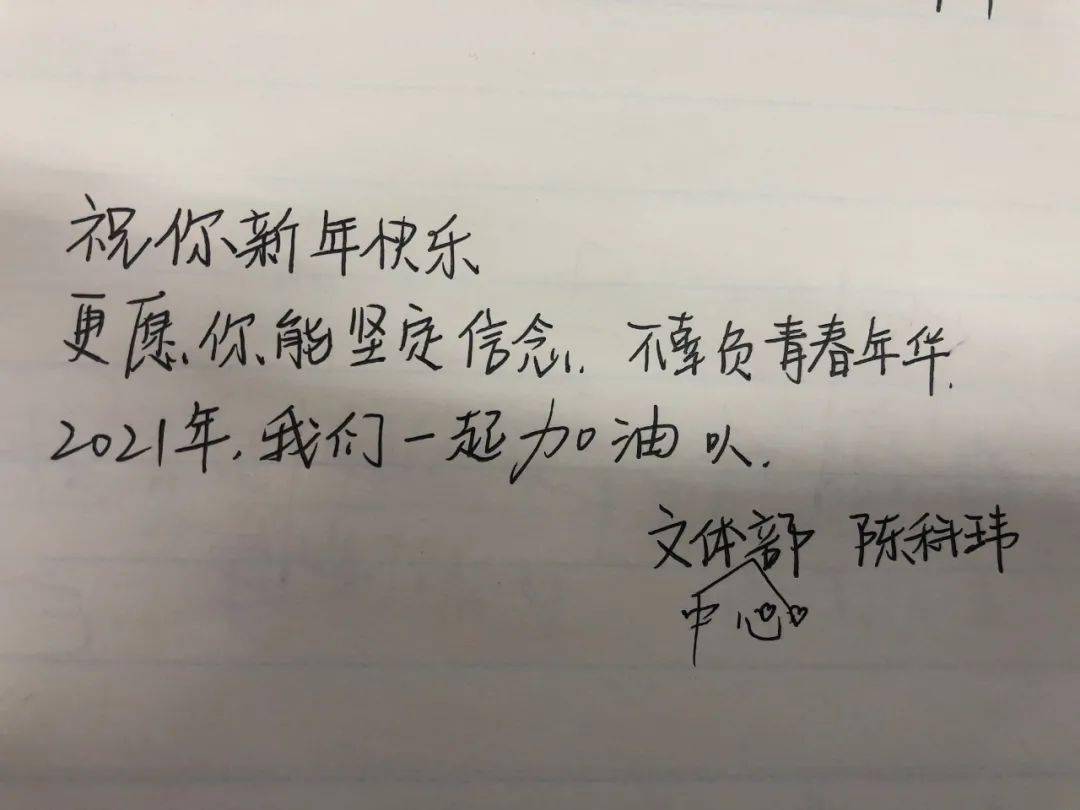 祝你新年快乐
更愿你能坚定信念，不辜负青春年华.
2021年,我们一起加油吖.
文体部 陈科玮
中心